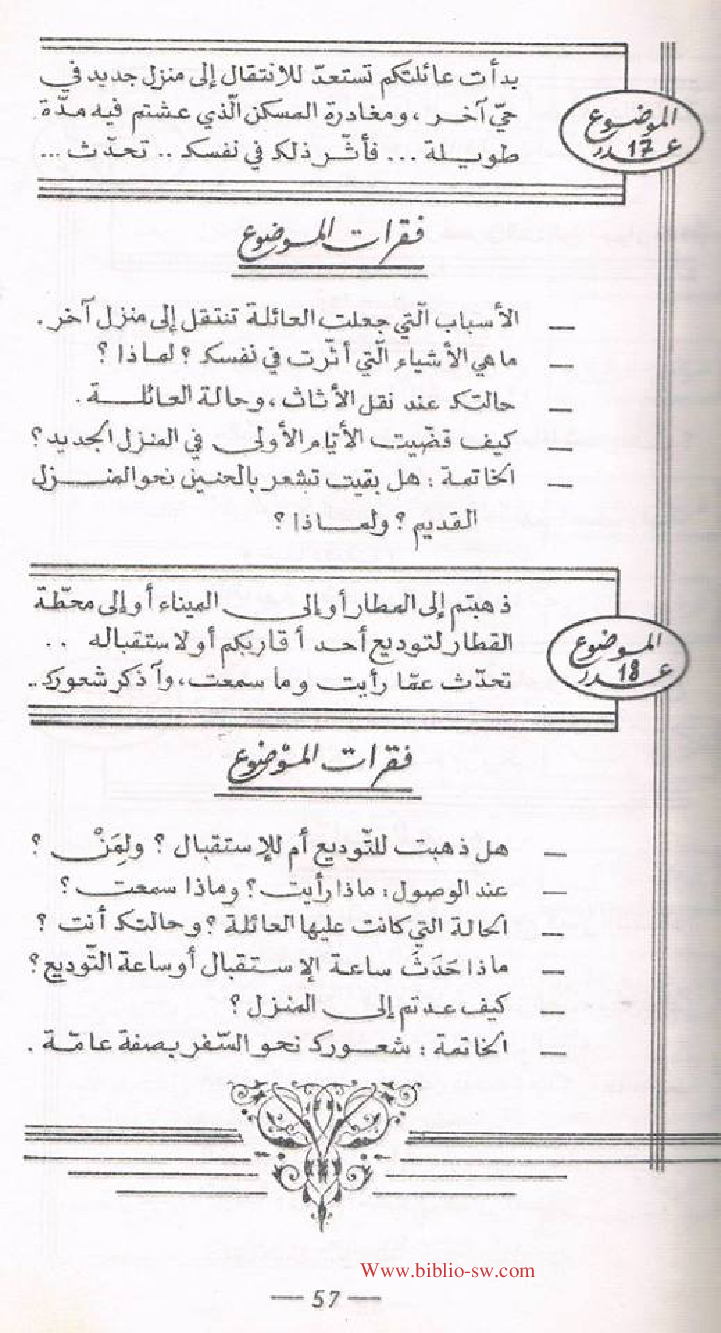 الموضوع
عدد 17
بدأت عائلتكم تستعدّ للانتقال إلى منزل جديد في
حيّ آخر، ومغادرة المسكن الّذي عشتم فيه مدّة
طويلة ... فأثّر ذلك في نفسك .. تحدّث ...
فقرات الموضوع
— الأسباب الّتي جعلت العائلة تنتقل إلى منزل آخر.
— ما هي الأشياء الّتي أثّرت في نفسك ؟ لماذا ؟
— حالتك عند نقل الأثاث، وحالة العائلة.
— كيف قضّيت الأيّام الأولى في المنزل الجديد؟
— الخاتمة : هل بقيت تشعر بالحنين نحو المنزل
القديم ؟ ولماذا ؟
الموضوع
عدد 18
ذهبتم إلى المطار أو إلى الميناء أو إلى محطّة
القطار لتوديع أحد أقاربكم أو لاستقباله ..
تحدّث عمّا رأيت وما سمعت، وآذكر شعورك..
فقرات الموْضوع
— هل ذهبت للتّوديع أم للإستقبال ؟ ولِمَنْ ؟
— عند الوصول : ماذا رأيت ؟ وماذا سمعت ؟
— الحالة التي كانت عليها العائلة ؟ وحالتك أنت ؟
— ماذا حَدَثَ ساعة الإستقبال أو ساعة التّوديع؟
— كيف عدتم إلى المنزل ؟
— الخاتمة : شعورك نحو السّفر بصفة عامّة.
Www.biblio-sw.com
— 57 —